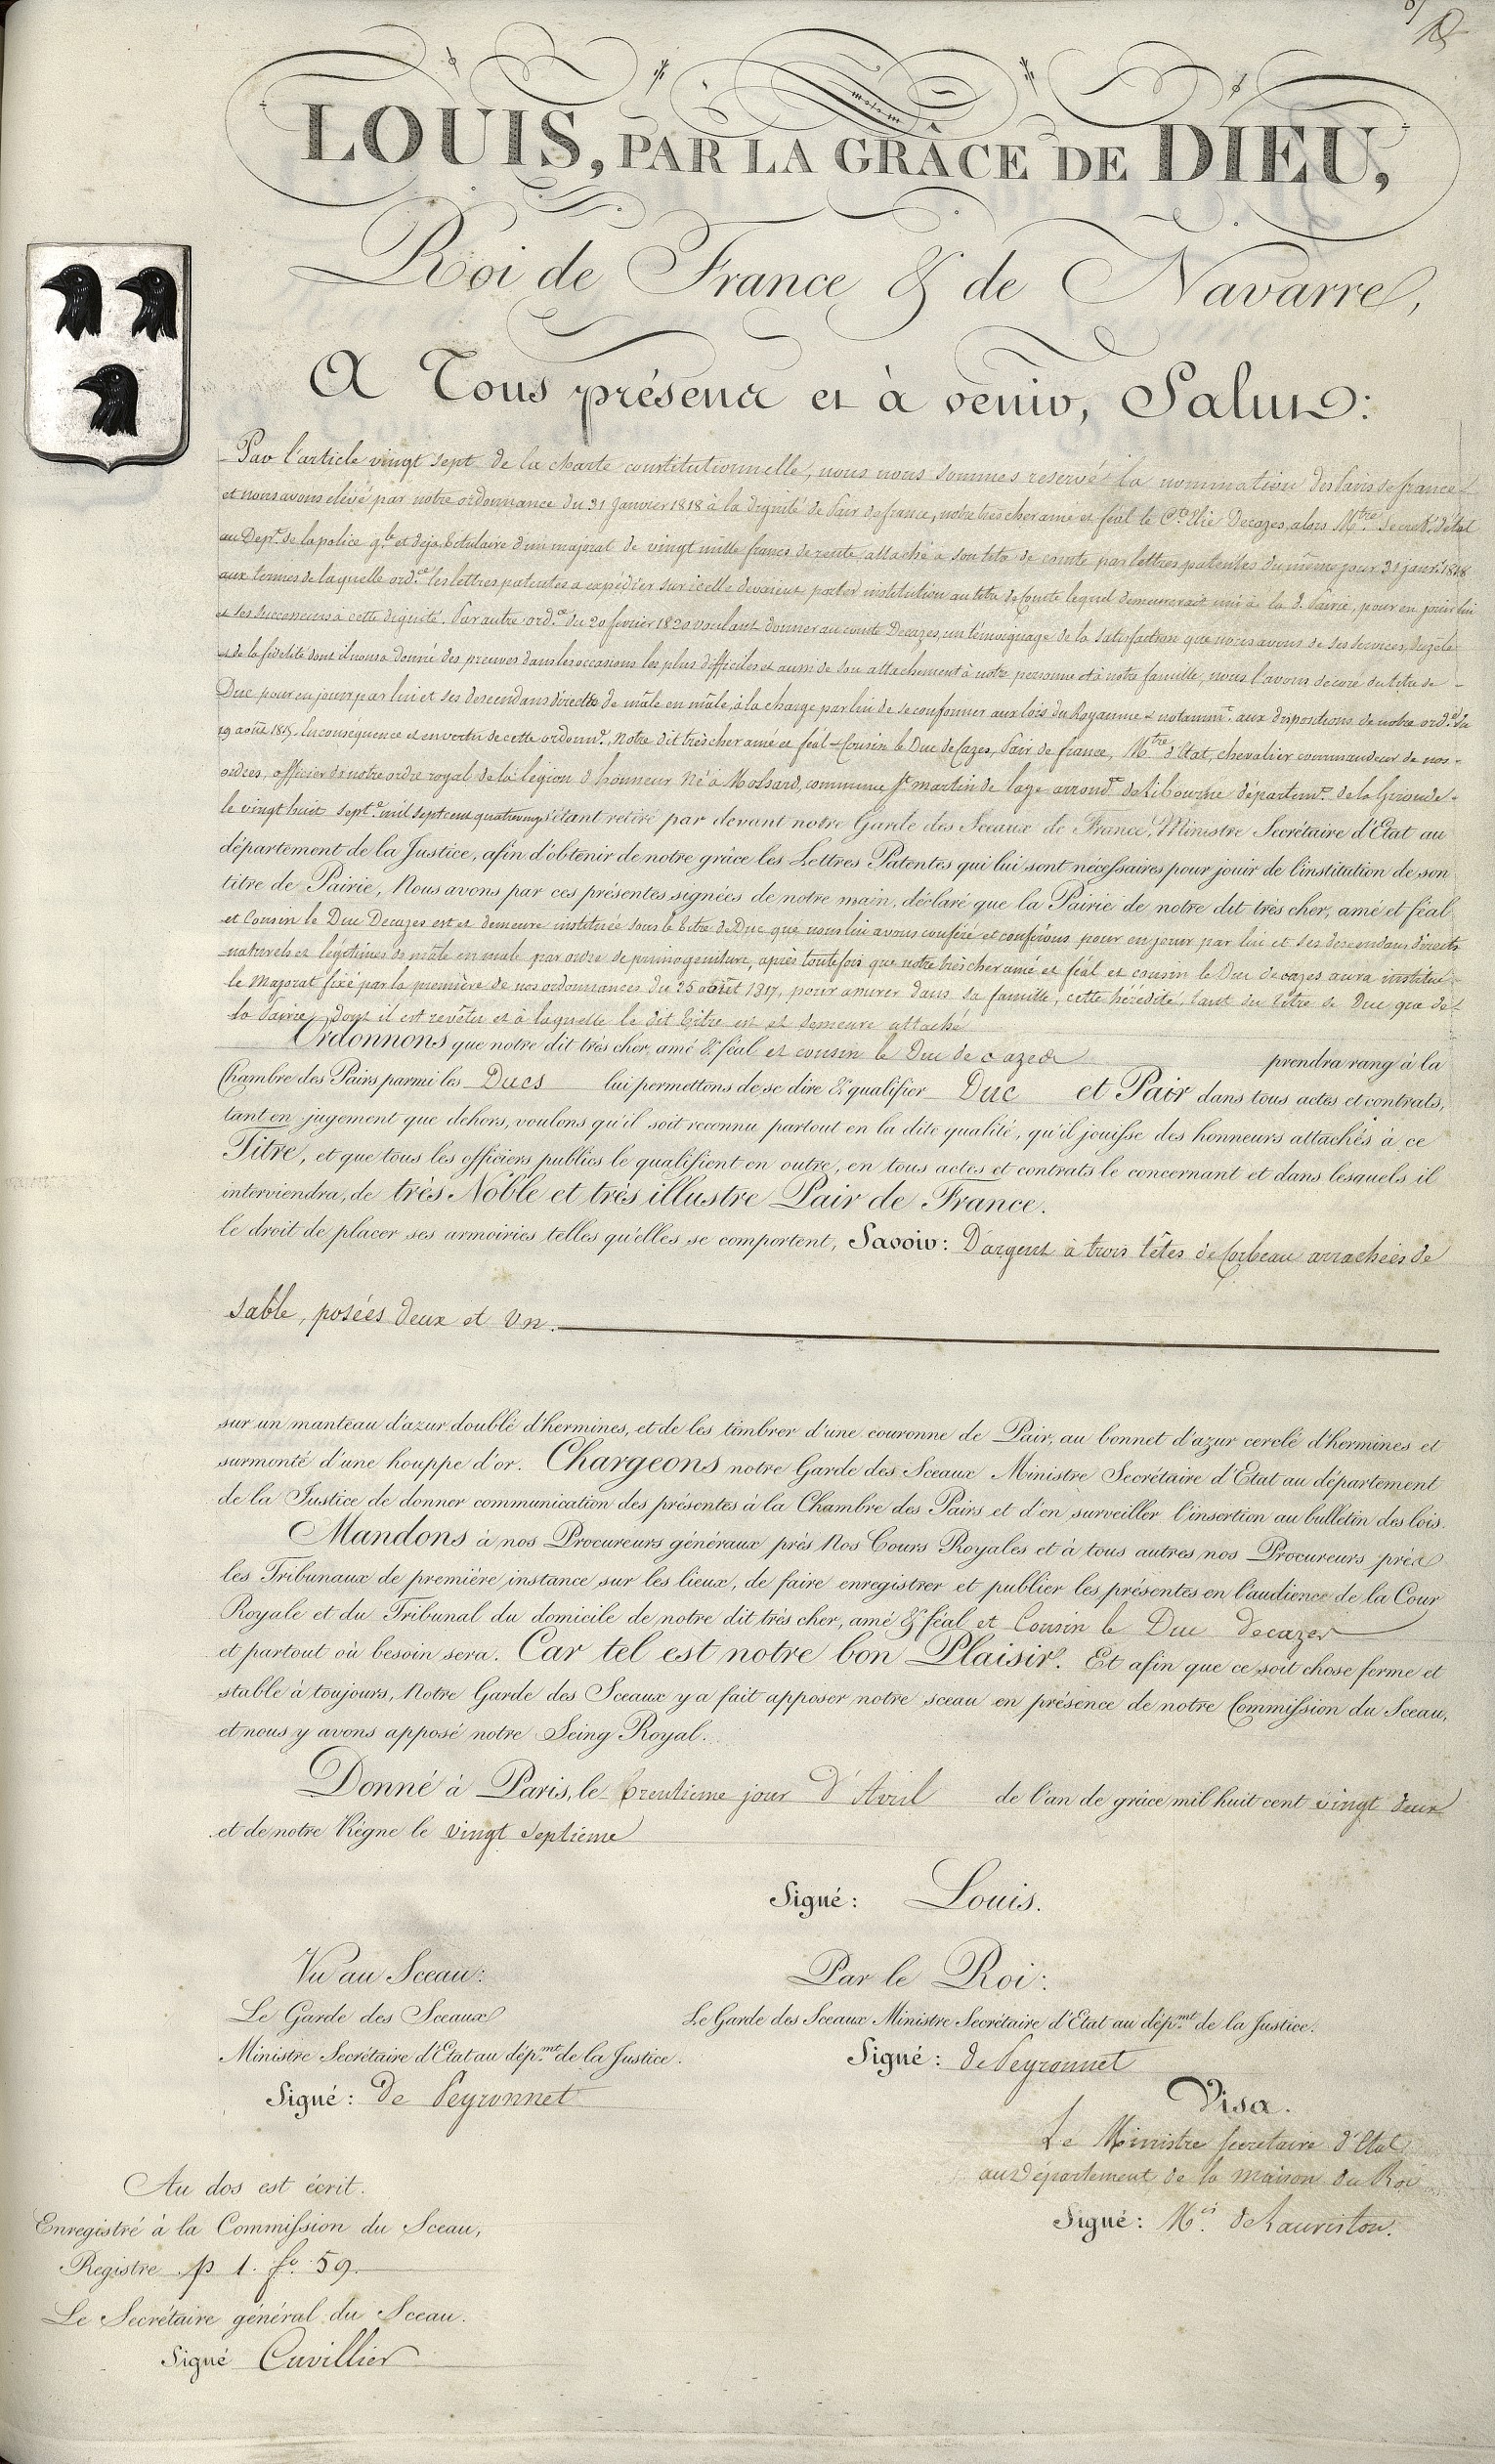 LOUIS, PAR LA GRÂCE DE DIEU,
Roi de France & de Navarre,
A Tous présens et à venir, Salut:
Par l'article vingt sept de la charte constitutionnelle, nous nous sommes reservé la nomination des Pairs de france
et nous avons elevé par notre ordonnance du 31 Janvier 1818 à la dignité de Pair de france, notre très cher amé et féal le Cte Elie Decazes, alors Mtre Secret. d'état
au Dept. de la police gle et deja titulaire d'un majorat de vingt mille francs de rente attaché a son titre de comte par lettres patentes du même jour 31 janv. 1818
aux termes de laquelle ordce les lettres patentes a expédier sur icelle devaient porter institution au titre de Comte lequel demeurerait uni à la d. Pairie, pour en jouir lui
et ses successeurs à cette dignité. Par autre ordce du 20 fevrier 1820 voulant donner au comte Decazes, un témoignage de la satisfaction que nous avons de ses services, du zèle
et de la fidelité dont il nous a donné des preuves dans les occasions les plus difficiles et aussi de son attachement à notre personne et à notre famille, nous l'avons décoré du titre de
Duc pour en jouir par lui et ses descendans directs de mâle en mâle, à la charge par lui de se conformer aux lois du Royaume & notammt. aux dispositions de notre ordce du
19 août 1815. En conséquence et en vertu de cette ordonnce, Notre dit très cher amé et féal Cousin le Duc de Cazes, Pair de france, Mtre d'Etat, chevalier commandeur de nos
ordres, officier de notre ordre royal de la légion d'honneur Né à , commune St martin de laye arrondt de Libourne départemt. de la Gironde
le vingt huit septe mil sept cent quatrevingt s'étant retiré par devant notre Garde des Sceaux de France, Ministre Secrétaire d'Etat au
département de la Justice, afin d'obtenir de notre grâce les Lettres Patentes qui lui sont nécessaires pour jouir de l'institution de son
titre de Pairie, Nous avons par ces présentes signées de notre main, déclaré que la Pairie de notre dit très cher, amé et féal
et Cousin le Duc Decazes est et demeure instituée sous le titre de Duc que nous lui avons conféré et conférons pour en jouir par lui et ses descendans directs
naturels et légitimes de mâle en mâle par ordre de primogeniture, après toutefois que notre très cher amé et féal et cousin le Duc decazes aura institué
le Majorat fixé par la première de nos ordonnances du 25 août 1817, pour assurer dans sa famille, cette hérédité, tant du titre de Duc que de
la Pairie, dont il est revêtu et à laquelle le dit titre est et demeure attaché
Ordonnons que notre dit très cher, amé & féal et cousin le Duc de cazes prendra rang à la
Chambre des Pairs parmi les Ducs lui permettons de se dire & qualifier Duc et Pair dans tous actes et contrats,
tant en jugement que dehors, voulons qu'il soit reconnu partout en la dite qualité, qu'il jouisse des honneurs attachés à ce
Titre, et que tous les officiers publics le qualifient en outre, en tous actes et contrats le concernant et dans lesquels il
interviendra, de très Noble et très illustre Pair de France.
le droit de placer ses armoiries telles qu'elles se comportent, Savoir: D'argent à trois têtes de Corbeau arrachées de
sable, posées deux et Un.
sur un manteau d'azur doublé d'hermines, et de les timbrer d'une couronne de Pair, au bonnet d'azur cerclé d'hermines et
surmonté d'une houppe d'or. Chargeons notre Garde des Sceaux Ministre Secrétaire d'Etat au département
de la Justice de donner communication des présentes à la Chambre des Pairs et d'en surveiller l'insertion au bulletin des lois.
Mandons à nos Procureurs généraux près Nos Cours Royales et à tous autres nos Procureurs près
les Tribunaux de première instance sur les lieux, de faire enregistrer et publier les présentes en l'audience de la Cour
Royale et du Tribunal du domicile de notre dit très cher, amé & féal et Cousin le Duc decazes
et partout où besoin sera. Car tel est notre bon Plaisir. Et afin que ce soit chose ferme et
stable à toujours, Notre Garde des Sceaux y a fait apposer notre sceau en présence de notre Commission du Sceau,
et nous y avons apposé notre Seing Royal.
Donné à Paris, le trentième jour d'Avril de l'an de grâce mil huit cent vingt deux
et de notre Règne le vingt septième
Signé: Louis.
Vu au Sceau:
Le Garde des Sceaux
Ministre Secrétaire d'Etat au dépmt de la Justice.
Signé: de Peyronnet
Par le Roi:
Le Garde des Sceaux Ministre Secrétaire d'Etat au dépmt de la Justice.
Signé: de Peyronnet
Visa.
Le Ministre secretaire d'Etat
au Département de la maison du Roi
Signé: Mis de Lauriston.
Au dos est écrit.
Enregistré à la Commission du Sceau,
Registre p 1. fo 59.
Le Secrétaire général du Sceau.
Signé Cuvillier